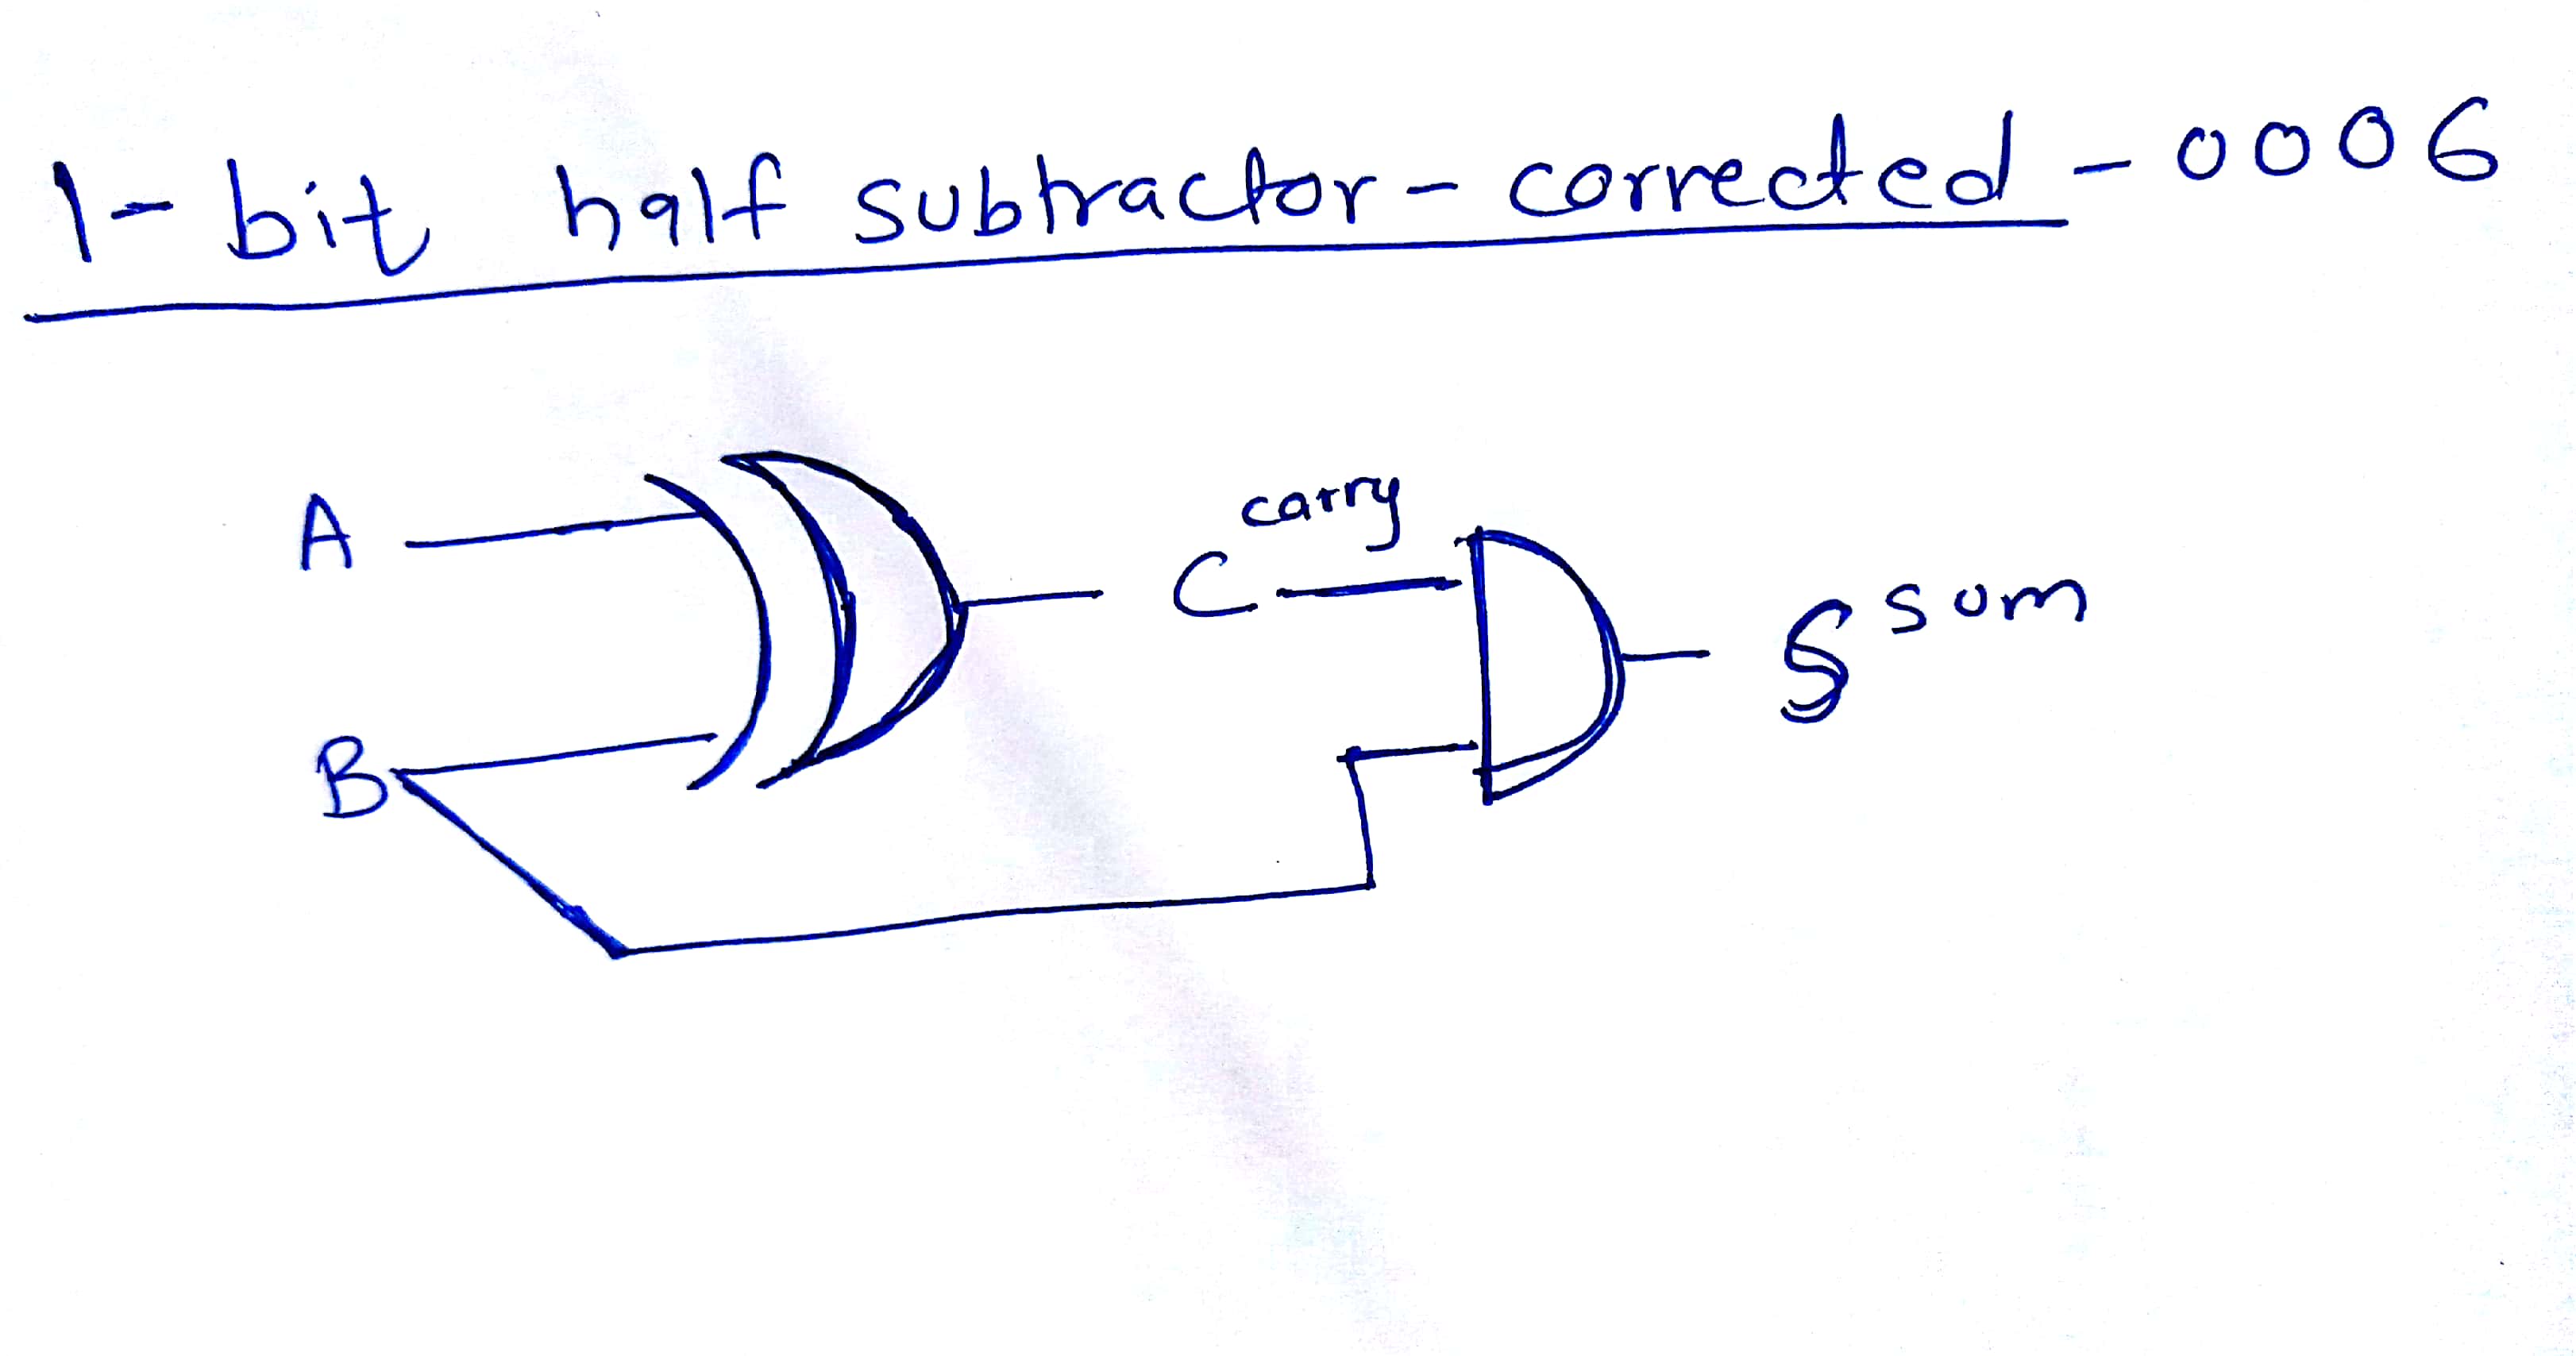 1-bit half subtractor - corrected - 0006
A
carry
C
S sum
B